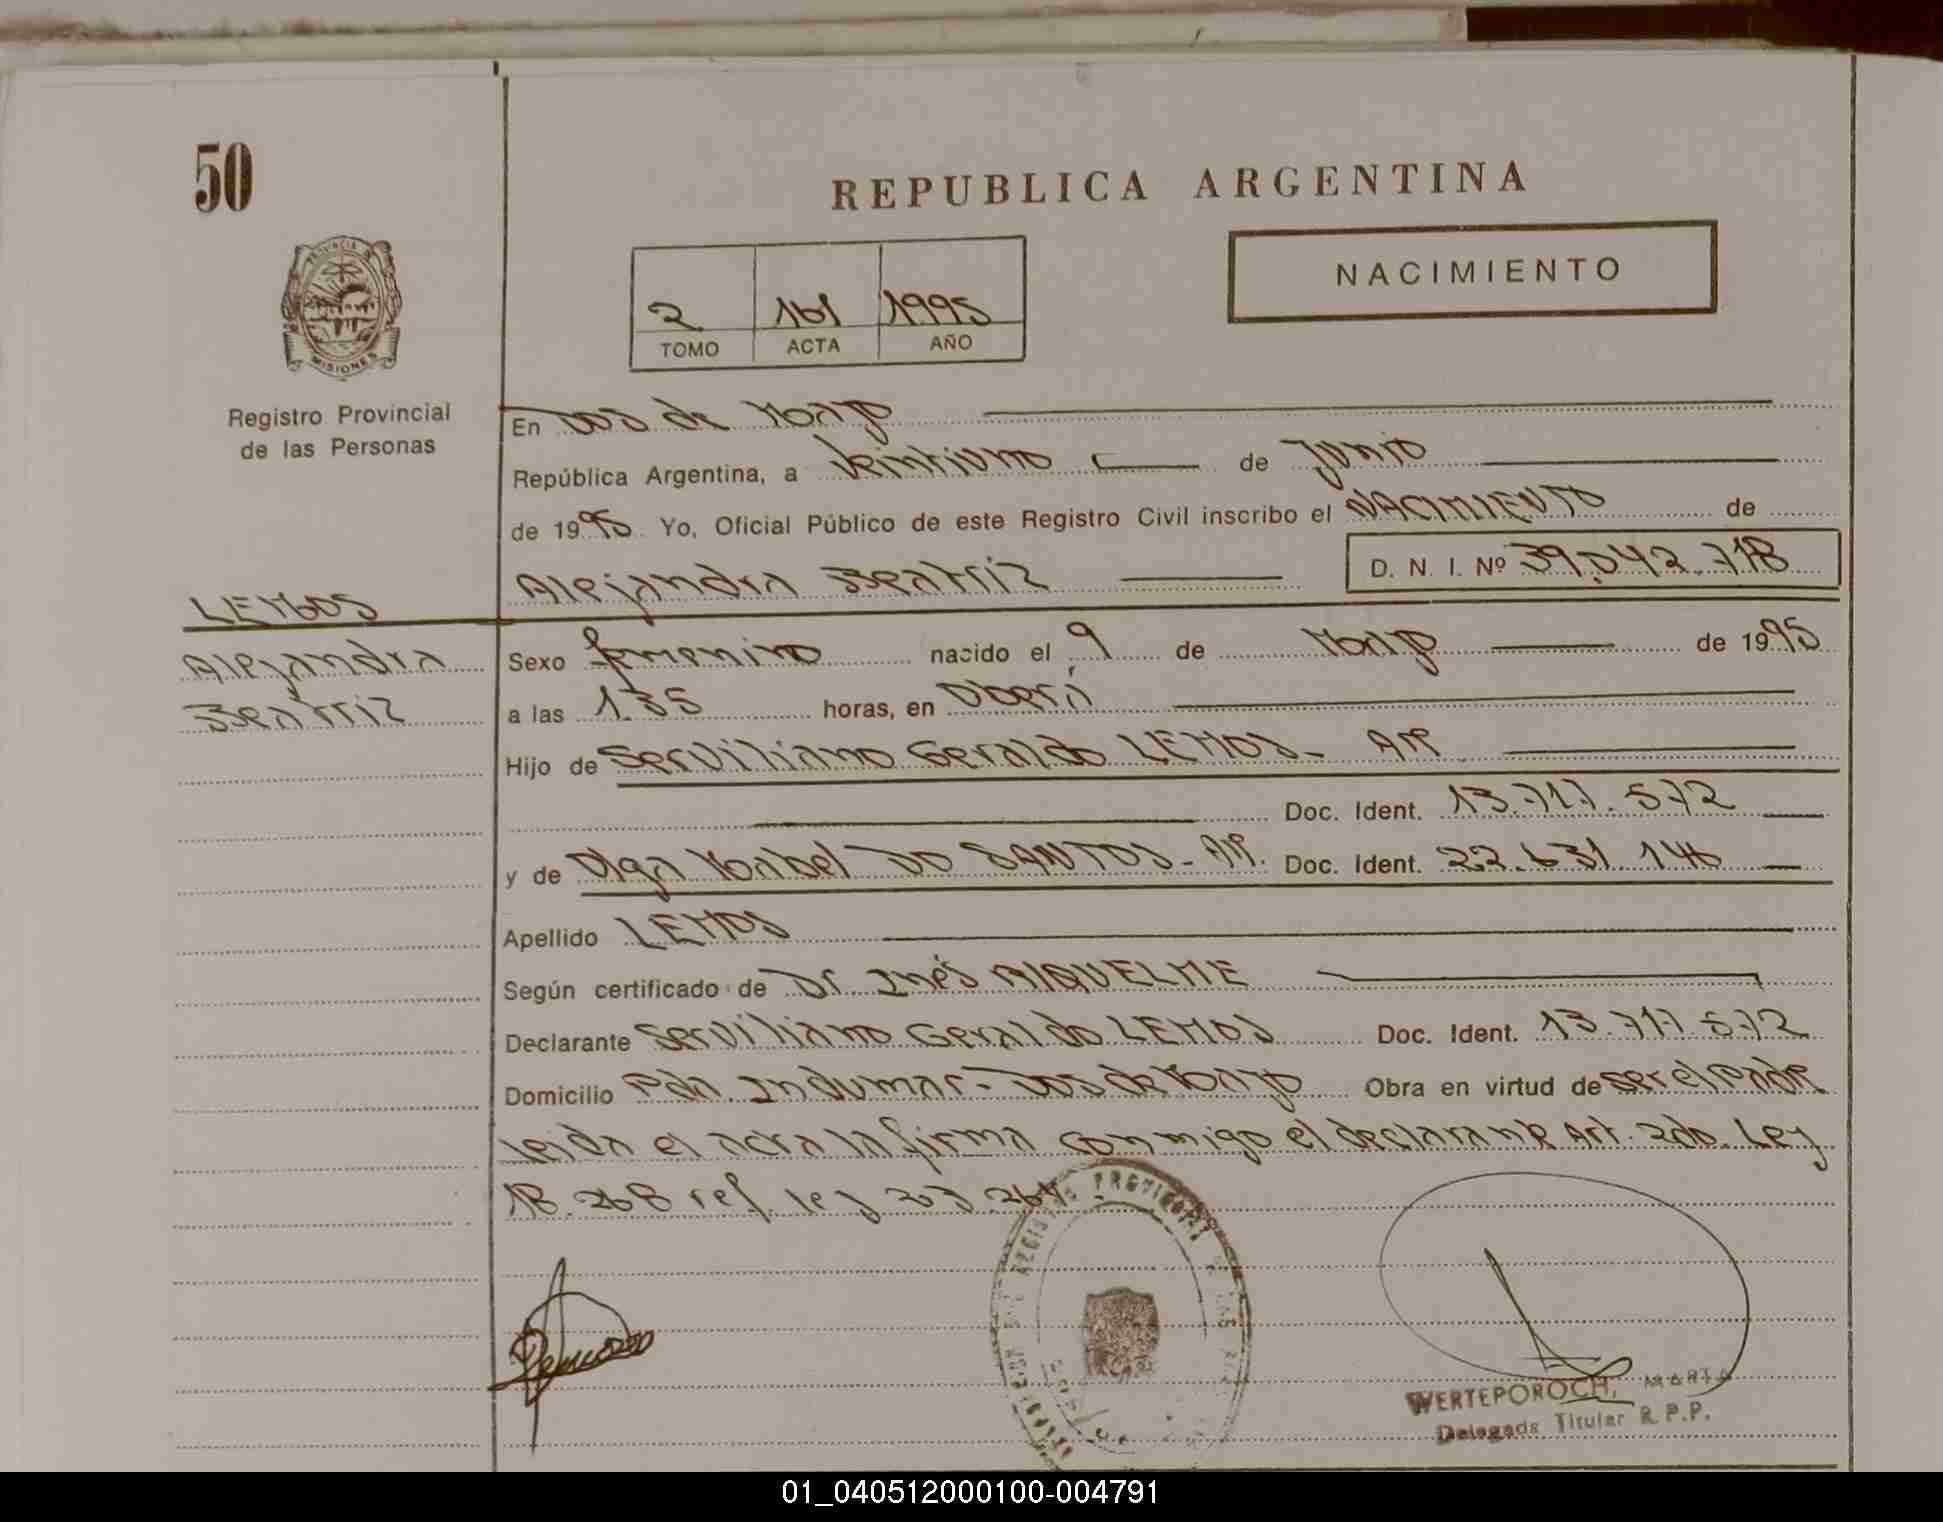 50
REPUBLICA ARGENTINA
PROVINCIA DE
MISIONES
NACIMIENTO
2 161 1995
TOMO ACTA AÑO
Registro Provincial
de las Personas
En Dos de Mayo
República Argentina, a veintiuno de Junio
de 1995 Yo, Oficial Público de este Registro Civil inscribo el NACIMIENTO de
Alejandra Beatriz D. N. I. Nº 39.042.718
LEMOS
Alejandra
Beatriz
Sexo femenino nacido el 9 de Mayo de 1995
a las 1.35 horas, en Oberá
Hijo de Serviliano Geraldo LEMOS- Arg
Doc. Ident. 13.717.572
y de Olga Isabel DO SANTOS- Doc. Ident. 22.631.146
Apellido LEMOS
Según certificado de Dr Inés RIQUELME
Declarante Serviliano Geraldo LEMOS Doc. Ident. 13.717.572
Domicilio Pda. Indumar- Dos de Mayo Obra en virtud de ser el padre
leida el acta la firma conmigo el declarante Art. 2do. Ley
18.268 ref. ley 23.264
WERTEPOROCH, MARTA
Delegada Titular R.P.P.
01_040512000100-004791